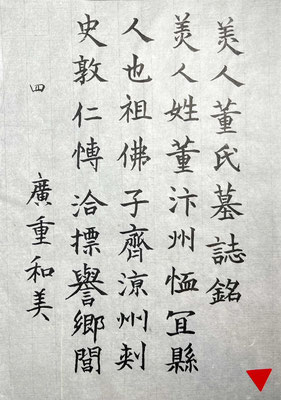 美人董氏墓誌銘
美人姓董汴州恤冝縣
人也祖佛子齊涼州刺
史敦仁愽洽標譽鄉閭
四 廣重和美